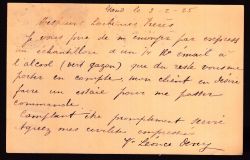 Gand le 3-2-25
Messieurs Lachinois Frères
Je vous prie de m'envoyer par express
un échantillon d'un N° 110 email à
l'alcool (vert gazon) que du reste vous me
porter en compte, mon client en désire
faire un essaie pour me passer
commande.
Comptant être promptement servi
Agréez mes civilités empressées
Léonce